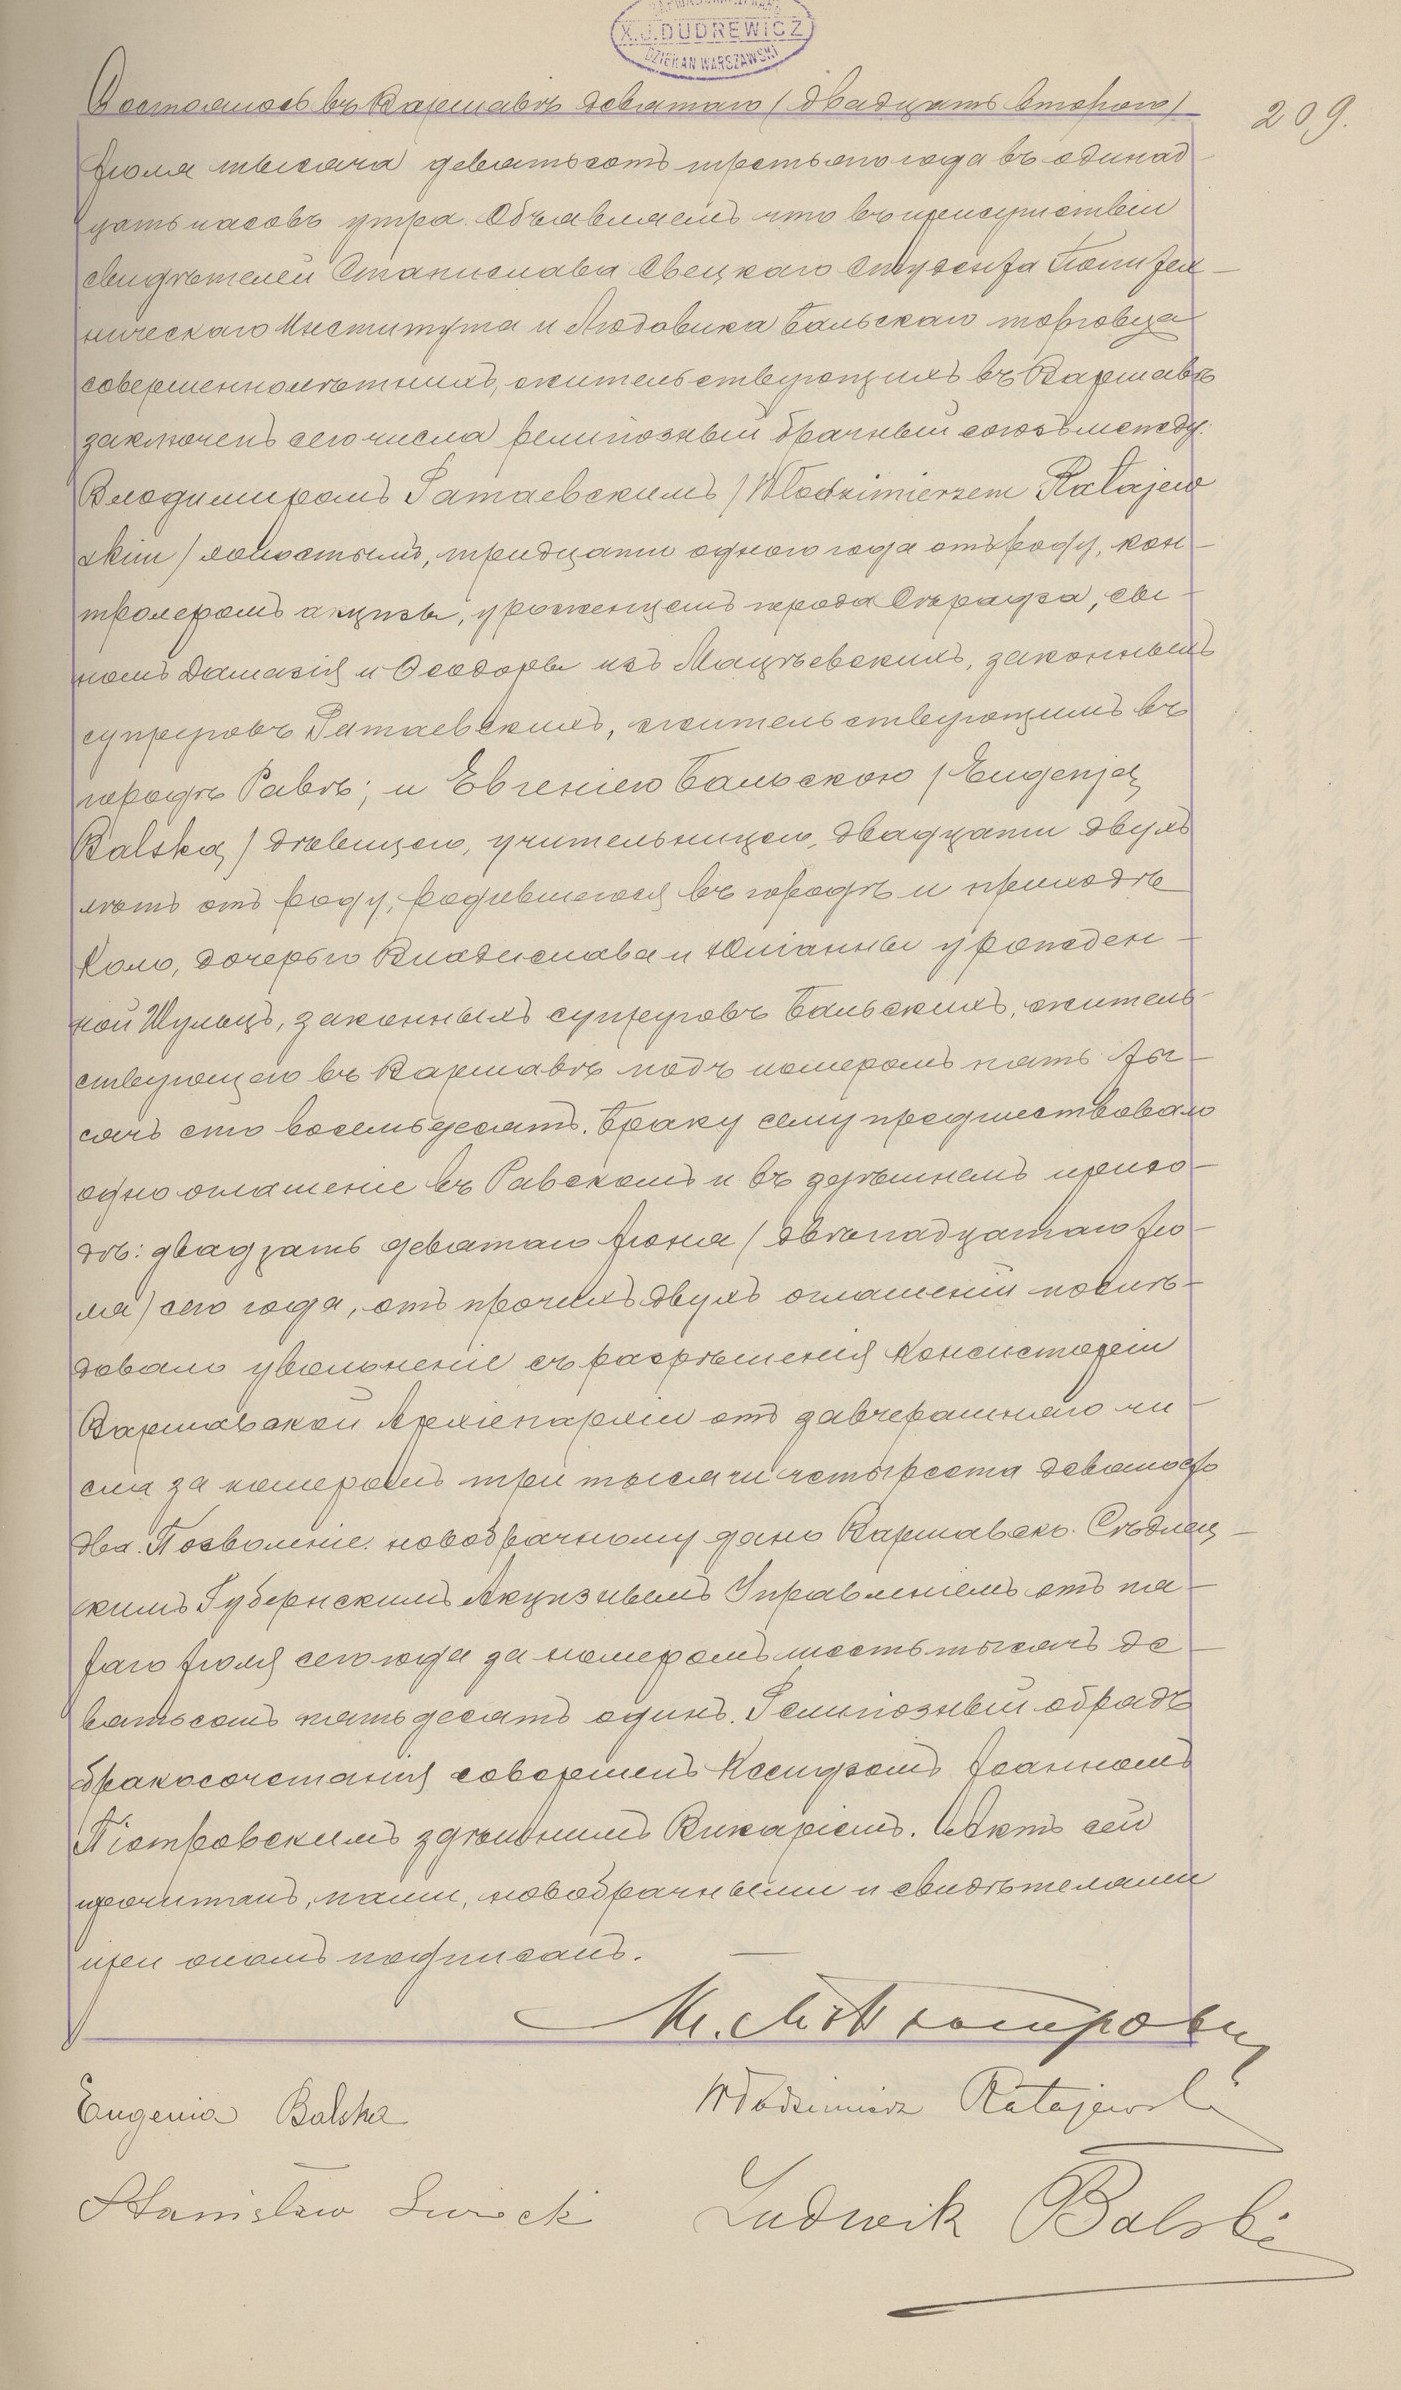 X.J.DUDREWICZ
DZIEKAN WARSZAWSKI
209.
Состоялось въ Варшавѣ девятаго / двадцать второго /
Іюля тысяча девятьсотъ третьяго года въ одинад
цать часовъ утра. Объявляемъ что въ присутствіи
свидѣтелей Станислава Свецкаго Студента Политех-
ническаго Института и Людовика Бальскаго торговца
совершеннолѣтнихъ, жительствующихъ въ Варшавѣ
заключенъ сего числа религіозный брачный союзъ между:
Влодимиромъ Ратаевскимъ / Włodzimierzem Ratajew
skim / холостымъ, тридцати одного года отъ роду, кон-
тролеромъ акциза, уроженцемъ города Сѣрадза, сы-
номъ Дамазія и Ѳеодоры изъ Мацѣевскихъ, законныхъ
супруговъ Ратаевскихъ, жительствующимъ въ
городѣ Равѣ; и Евгеніею Бальскою / Eugenją
Balską / дѣвицею, учительницею, двадцати двухъ
лѣтъ отъ роду, родившеюся въ городѣ и приходѣ
Коло, дочерью Владислава и Юліанны урожден-
ной Шульцъ, законныхъ супруговъ Бальскихъ, житель-
ствующею въ Варшавѣ подъ номеромъ пять ты-
сячъ сто восемьдесятъ. Браку сему предшествовало
одно оглашеніе въ Равскомъ и въ здѣшнемъ прихо-
дѣ: двадцать девятаго Іюня / двѣнадцатаго Ію-
ля / сего года, отъ прочихъ двухъ оглашеній послѣ-
довало увольненіе съ разрѣшенія Консисторіи
Варшавской Архіепархіи отъ завчерашняго чи-
сла за номеромъ три тысячи четыреста девяносто
два. Позволеніе новобрачному дано Варшавско. Сѣдлец-
кимъ Губернскимъ Акцизнымъ Управленіемъ отъ пя-
таго Іюля сего года за номеромъ шесть тысячъ де-
вятьсотъ пятьдесятъ одинъ. Религіозный обрядъ
бракосочетанія совершенъ Ксендзомъ Іоанномъ
Піотровскимъ здѣшнимъ Викаріемъ. Актъ сей
прочитанъ, нами, новобрачными и свидѣтелями
при ономъ подписанъ. —
Eugenia Balska
Włodzimierz Ratajewski
Stanisław Swiecki
Ludwik Balski